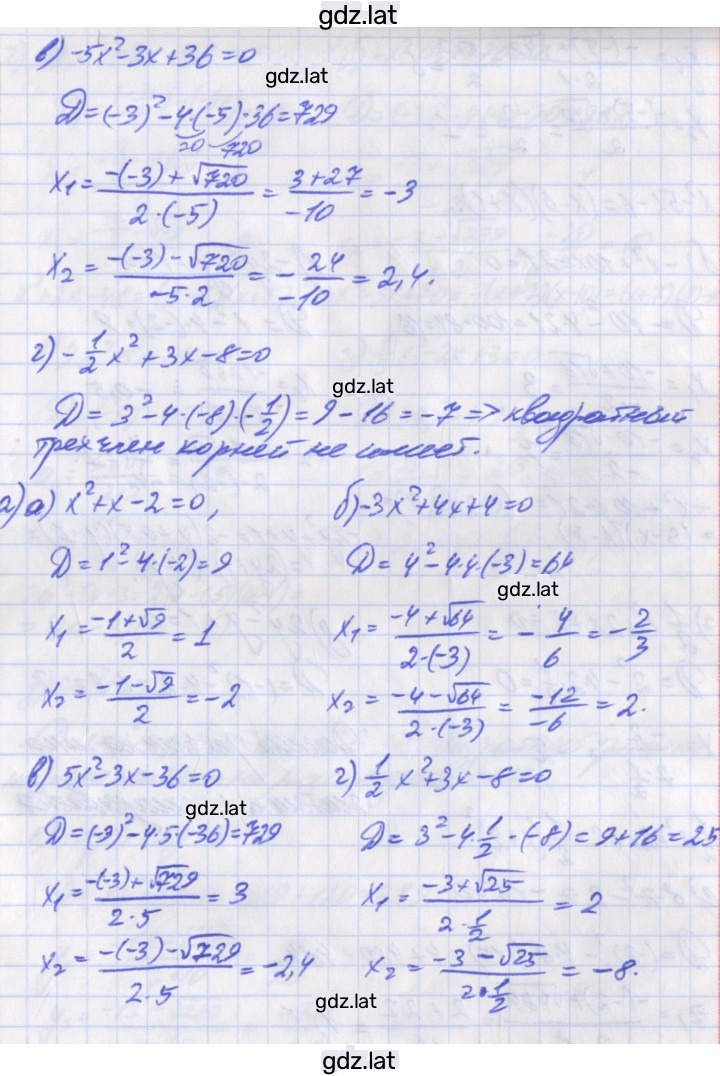 gdz.lat
в) -5x²-3x+36=0
gdz.lat
Д=(-3)²-4·(-5)·36=729
20 720
x₁= (-(-3)+√720)/(2·(-5)) = (3+27)/(-10) = -3
x₂ = (-(-3)-√720)/(-5·2) = - 24/(-10) = 2,4.
г) -1/2x²+3x-8=0
gdz.lat
Д= 3²-4·(-8)·(-1/2)=9-16=-7=> квадратный
трехчлен корней не имеет.
2) а) x²+x-2=0,
Д=1²-4·(-2)=9
x₁= (-1+√9)/2 = 1
x₂= (-1-√9)/2 = -2
б) -3x²+4x+4=0
Д= 4²-4·4·(-3)=64
gdz.lat
x₁= (-4+√64)/(2·(-3)) = - 4/6 = -2/3
x₂= (-4-√64)/(2·(-3)) = (-12)/(-6) = 2.
в) 5x²-3x-36=0
gdz.lat
Д=(-3)²-4·5·(-36)=729
x₁= (-(-3)+√729)/(2·5) = 3
x₂= (-(-3)-√729)/(2·5) = -2,4
г) 1/2 x²+3x-8=0
Д= 3²-4·1/2·(-8)=9+16=25
x₁= (-3+√25)/(2·1/2) = 2
x₂= (-3-√25)/(2·1/2) = -8.
gdz.lat
gdz.lat